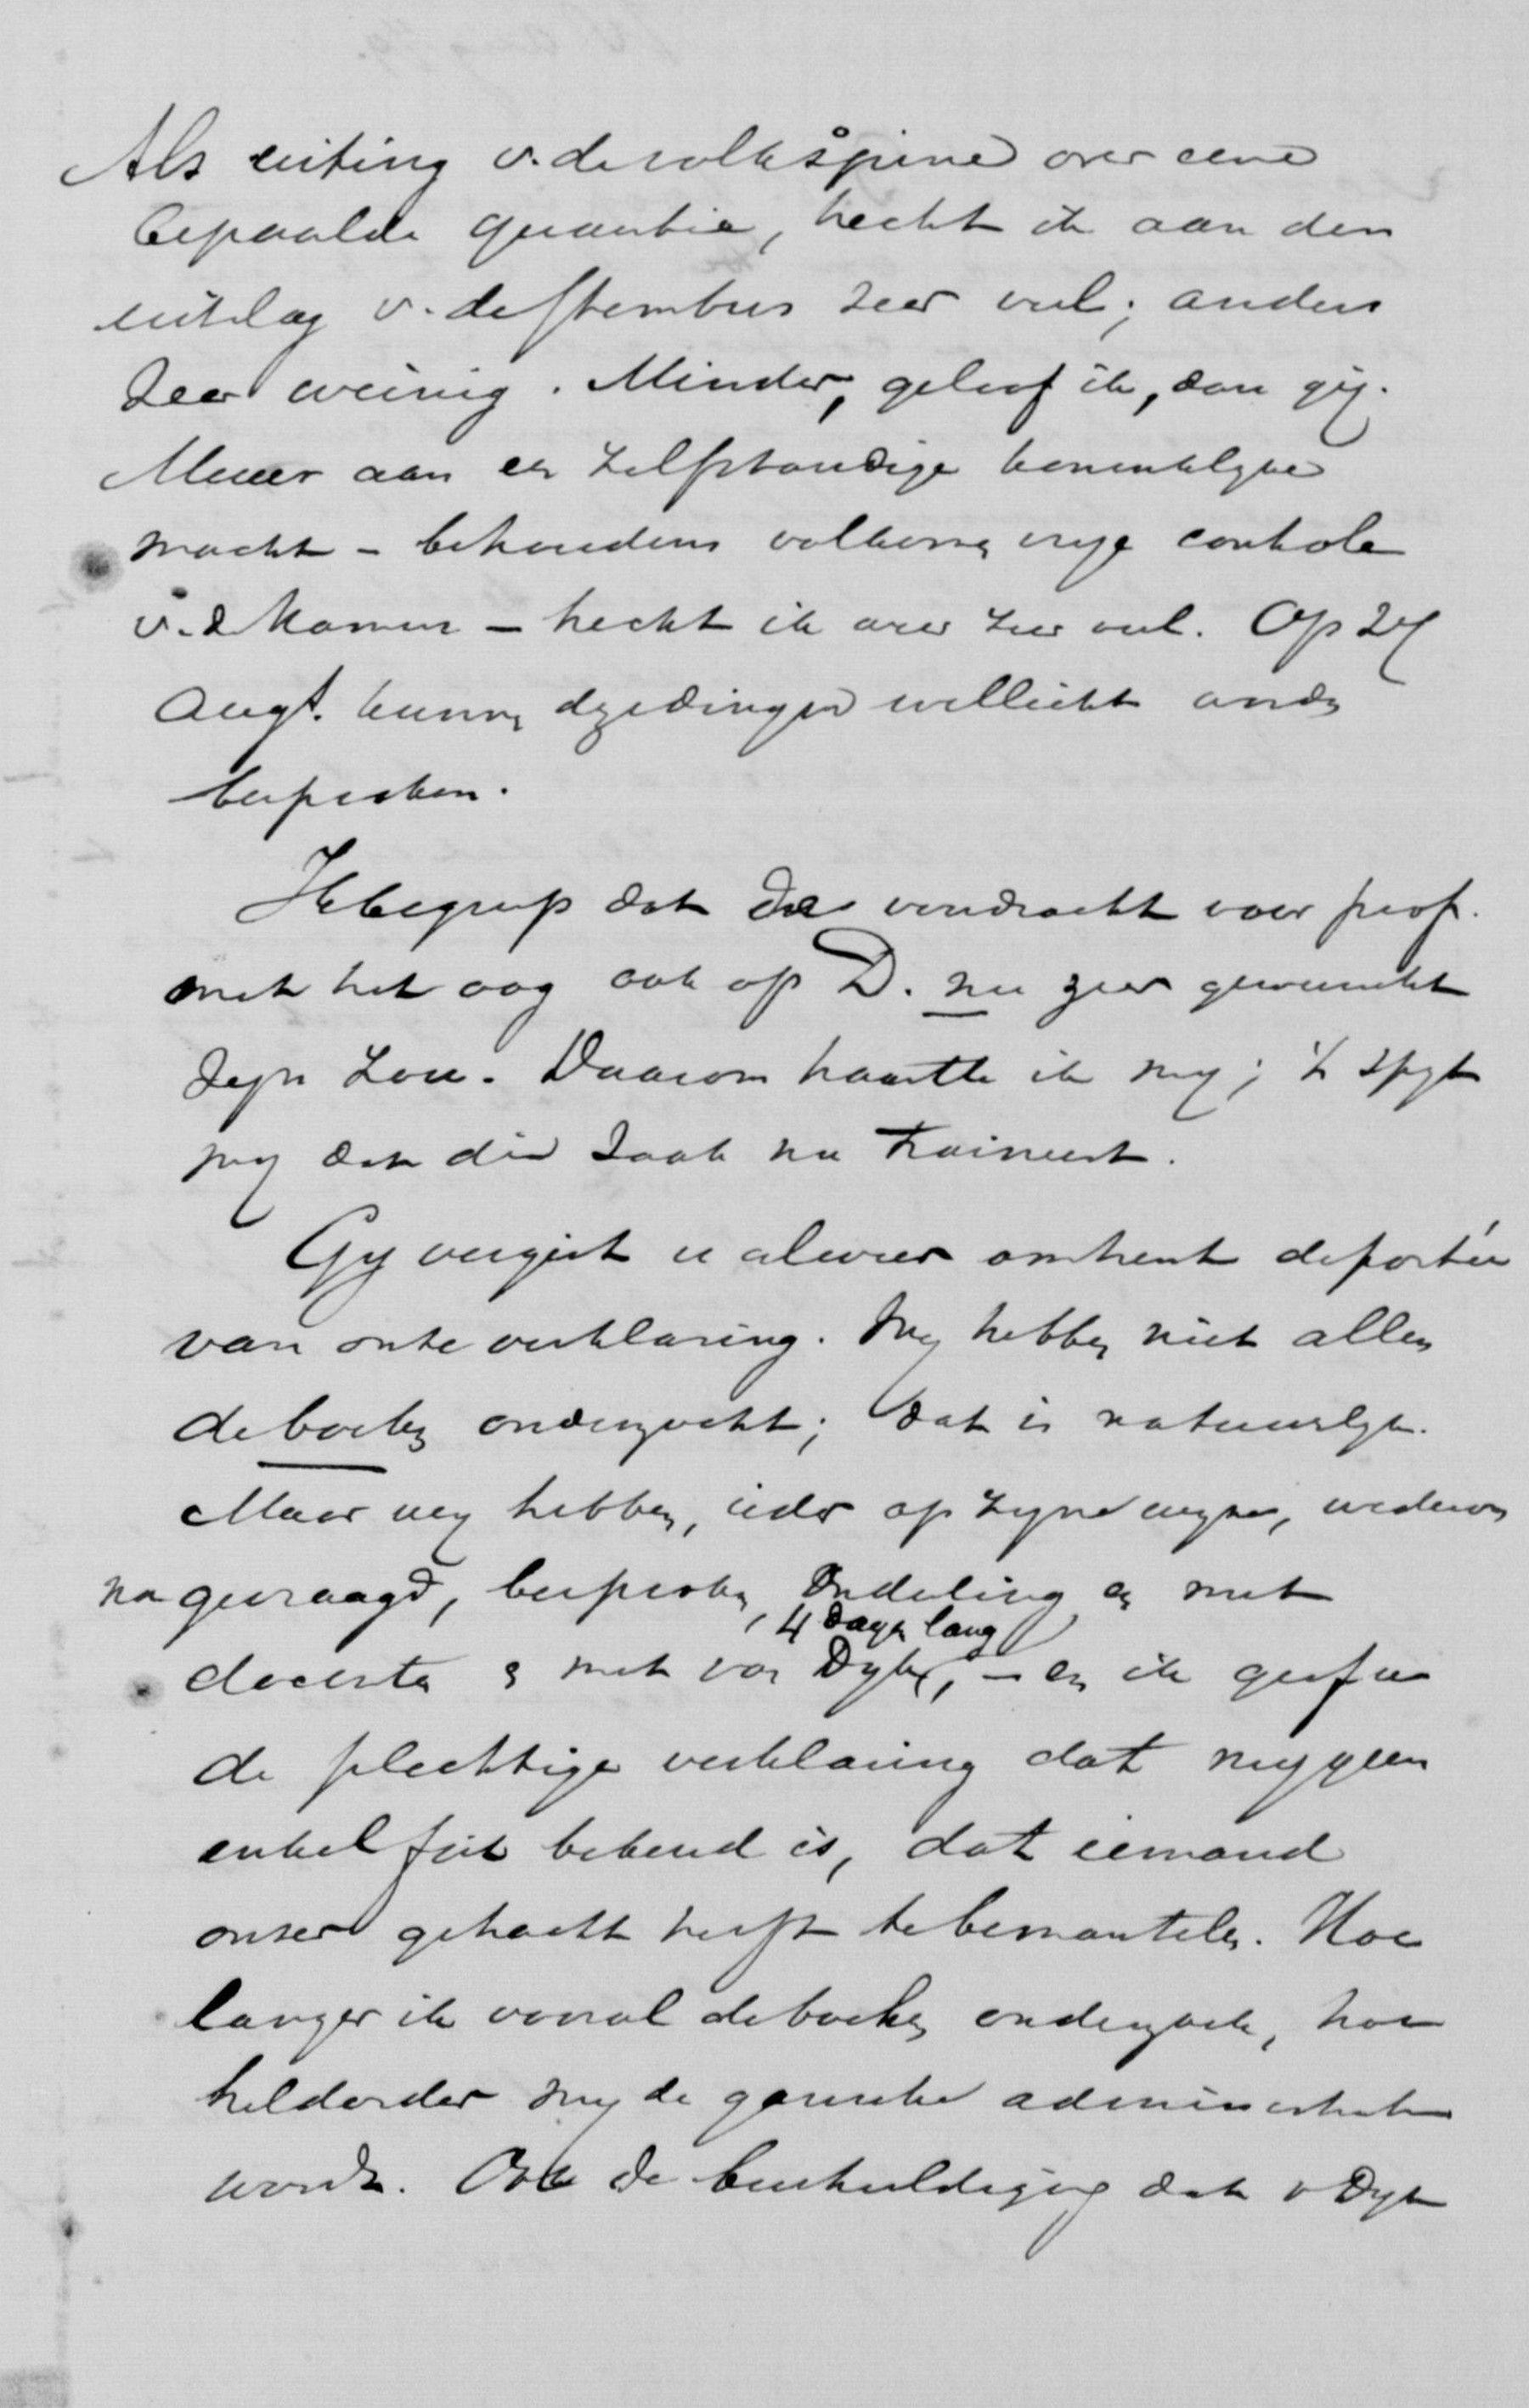 Als uiting v. de volksopinie over eene
bepaalde quaestie, hecht ik aan den
uitslag v. de stembus zeer veel; anders
zeer weinig. Minder, geloof ik, dan gij.
Maar aan een zelfstandige koninklyke
macht – behoudens volkomen vrye controle
v. d. Kamer – hecht ik zeer veel. Op 24
Augt. kunnen dezedingen wellicht worden
besproken.
Ik begryp dat de eendracht voor prof.
met het oog ook op D. nu zeer gewenscht
zyn zou. Daarom haastte ik my; 't spyt
my dat die zaak nu traineert.
Gy vergist u alweer omtrent de portée
van onze verklaring. Wy hebben niet alleen
de boeken onderzocht; dat is natuurlyk.
Maar wy hebben, ieder op zyne wyze, wederom
nagevraagd, besproken, onderling en met
4 dagen lang
docenten & met van Dyk, – en ik geef u
de plechtige verklaring dat my geen
enkel feit bekend is, dat iemand
onzer getracht heeft te bemantelen. Hoe
langer ik vooral de boeken onderzoek, hoe
helderder my de gansche administratie
wordt. Ook de beschuldiging dat v Dyk